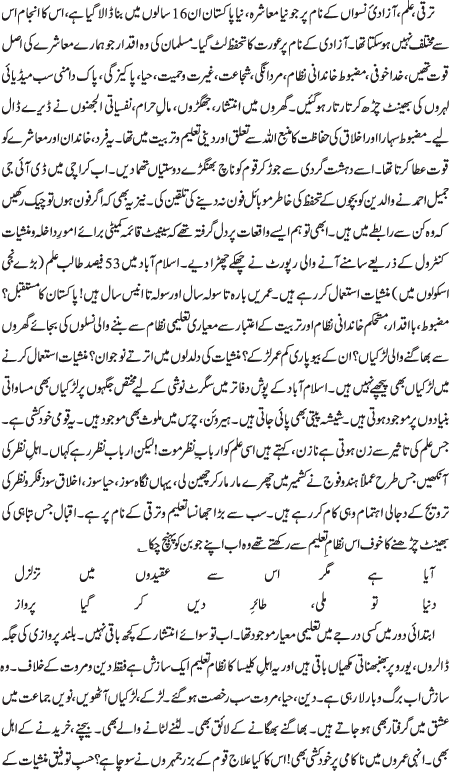 ترقی، علم، آزادیٔ نسواں کے نام پر جو نیا معاشرہ، نیا پاکستان ان 16 سالوں میں بنا ڈالا گیا ہے، اس کا انجام اس
سے مختلف نہیں ہوسکتا تھا۔ آزادی کے نام پر عورت کا تحفظ لٹ گیا۔ مسلمان کی وہ اقدار جو ہمارے معاشرے کی اصل
قوت تھیں، خدا خوفی، مضبوط خاندانی نظام، مردانگی، شجاعت، غیرت و حمیت، حیا، پاکیزگی، پاک دامنی سب میڈیائی
لہروں کی بھینٹ چڑھ کر تار تار ہوگئیں۔ گھروں میں انتشار، جھگڑوں، مالِ حرام، نفسیاتی الجھنوں نے ڈیرے ڈال
لیے۔ مضبوط سہارا اور اخلاق کی حفاظت کا منبع اللہ سے تعلق اور دینی تعلیم و تربیت میں تھا۔ یہ فرد، خاندان اور معاشرے کو
قوت عطا کرتا تھا۔ اسے دہشت گردی سے جوڑ کر قوم کو ناچ بھنگڑے دوستیاں تھما دیں۔ اب کراچی میں ڈی آئی جی
جمیل احمد نے والدین کو بچوں کے تحفظ کی خاطر موبائل فون نہ دینے کی تلقین کی۔ نیز یہ بھی کہ اگر فون ہوں تو چیک رکھیں
کہ وہ کن سے رابطے میں ہیں۔ ابھی تو ہم ایسے واقعات پر دل گرفتہ تھے کہ سینیٹ قائمہ کمیٹی برائے امورِ داخلہ و منشیات
کنٹرول کے ذریعے سامنے آنے والی رپورٹ نے چھکے چھڑا دیے۔ اسلام آباد میں 53 فیصد طالب علم (بڑے نجی
اسکولوں میں) منشیات استعمال کر رہے ہیں۔ عمریں بارہ تا سولہ سال اور سولہ تا انیس سال ہیں! پاکستان کا مستقبل؟
مضبوط، بااقدار، مستحکم خاندانی نظام اور تربیت کے اعتبار سے معیاری تعلیمی نظام سے بننے والی نسلوں کی بجائے گھروں
سے بھاگنے والی لڑکیاں؟ ان کے بیوپاری کم عمر لڑکے؟ منشیات کی دلدلوں میں اترتے نوجوان؟ منشیات استعمال کرنے
میں لڑکیاں بھی پیچھے نہیں ہیں۔ اسلام آباد کے پوش دفاتر میں سگرٹ نوشی کے لیے مختص جگہوں پر لڑکیاں بھی مساواتی
بنیادوں پر موجود ہوتی ہیں۔ شیشہ پیتی بھی پائی جاتی ہیں۔ ہیروئن، چرس میں ملوث بھی موجود ہیں۔ یہ قومی خودکشی ہے۔
جس علم کی تاثیر سے زن ہوتی ہے نازن، کہتے ہیں اسی علم کو اربابِ نظر موت! لیکن اربابِ نظر رہے کہاں۔ اہلِ نظر کی
آنکھیں جس طرح عملاً ہندو فوج نے کشمیر میں چھرے مار مار کر چھین لی، یہاں نگاہ سوز، حیا سوز، اخلاق سوز فکر و نظر کی
ترویج کے دجالی اہتمام وہی کام کر رہے ہیں۔ سب سے بڑا جھانسا تعلیم و ترقی کے نام پر ہے۔ اقبال جس تباہی کی
بھینٹ چڑھنے کا خوف اس نظامِ تعلیم سے رکھتے تھے وہ اب اپنے جوبن کو پہنچ چکا ؎
آیا ہے مگر اس سے عقیدوں میں تزلزل
دنیا تو ملی، طائرِ دیں کر گیا پرواز
ابتدائی دور میں کسی درجے میں تعلیمی معیار موجود تھا۔ اب تو سوائے انتشار کے کچھ باقی نہیں۔ بلند پروازی کی جگہ
ڈالروں، یورو پر بھنبھناتی مکھیاں باقی ہیں اور یہ اہلِ کلیسا کا نظامِ تعلیم ایک سازش ہے فقط دین و مروت کے خلاف۔ وہ
سازش اب برگ و بار لا رہی ہے۔ دین، حیا، مروت سب رخصت ہوگئے۔ لڑکے، لڑکیاں آٹھویں، نویں جماعت میں
عشق میں گرفتار بھی ہو جاتے ہیں۔ بھاگنے بھگانے کے لائق بھی۔ لٹنے لٹانے والے بھی۔ بیچنے، خریدنے کے اہل
بھی۔ انہی عمروں میں ناکامی پر خودکشی بھی! اس کا کیا علاج قوم کے بزرجمہروں نے سوچا ہے؟ حسبِ توفیق منشیات کے